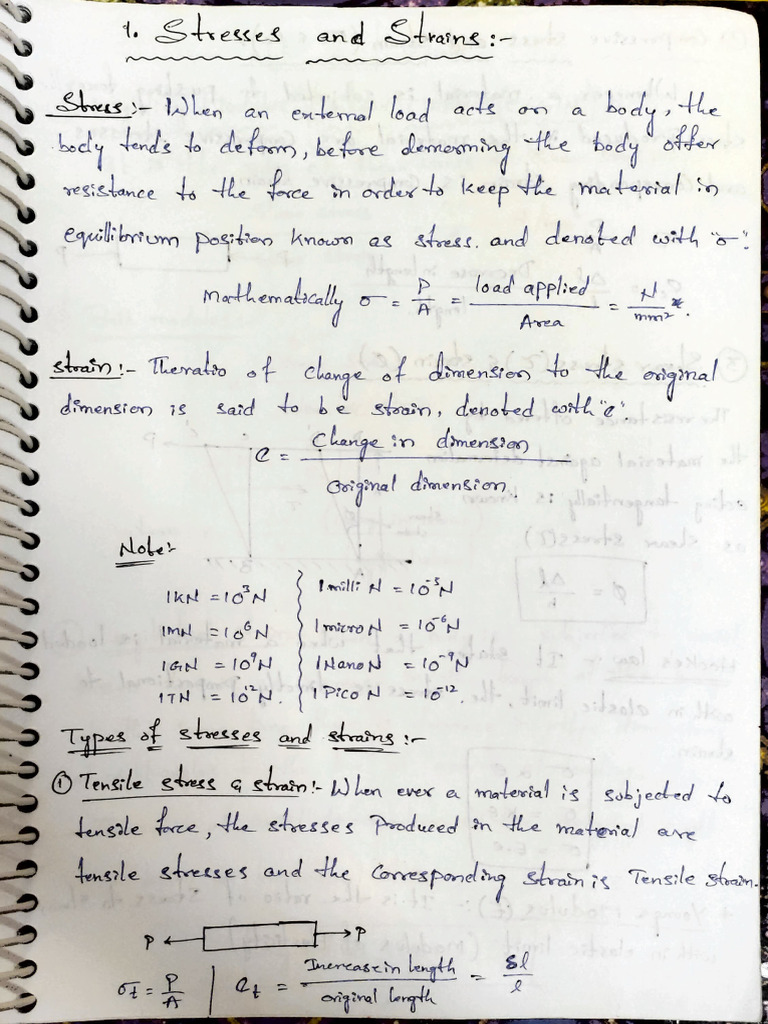 1. Stresses and Strains:-
Stress:- When an external load acts on a body, the
body tends to deform, before demorming the body offer
resistance to the force in order to keep the material in
equillibrium position known as stress. and denoted with "σ".
Mathematically σ = P/A = load applied/Area = N/mm² *.
strain:- The ratio of change of dimension to the original
dimension is said to be strain, denoted with "e".
e = Change in dimension/Original dimension.
Note:-
1KN = 10³N 1 milli N = 10⁻³N
1MN = 10⁶N 1 micro N = 10⁻⁶N
1GN = 10⁹N 1 Nano N = 10⁻⁹N
1TN = 10¹²N. 1 Pico N = 10⁻¹².
Types of stresses and strains:-
① Tensile stress & strain:- When ever a material is subjected to
tensile force, the stresses Produced in the material are
tensile stresses and the corresponding strain is Tensile strain.
P P
σt = P/A | et = Increase in length/original length = δl/l